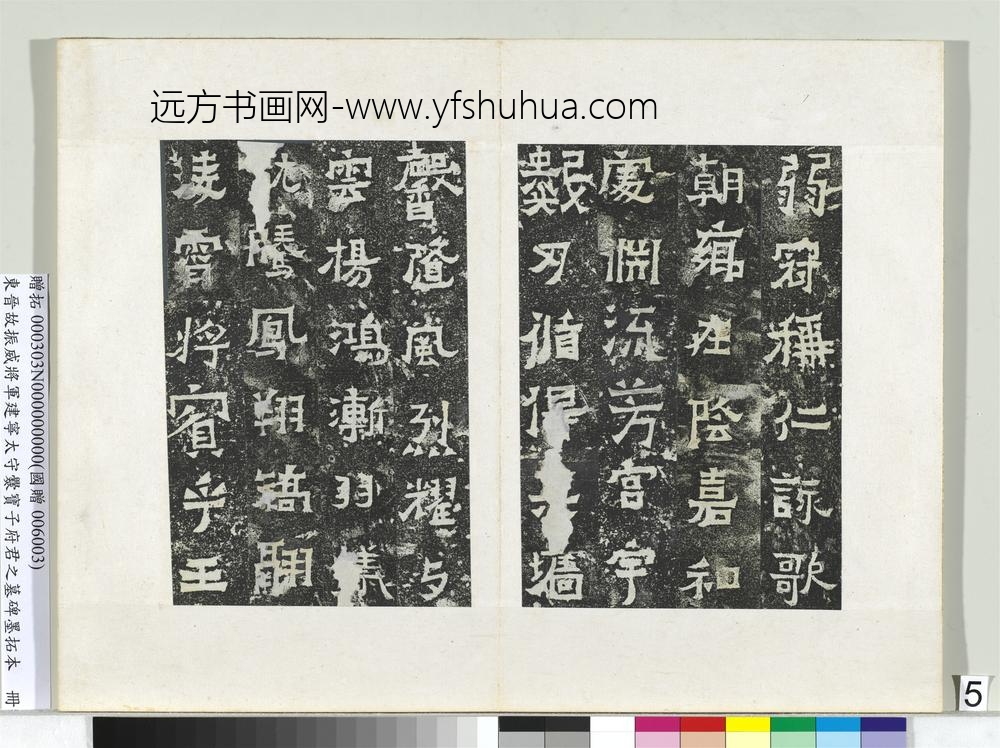 远方书画网-www.yfshuhua.com
弱冠稱仁詠歌
朝鄉在陰嘉和
處淵流芳宮宇
數刃循得墙
馨隨風烈耀与
雲揚鴻漸羽儀
騰鳳翔矯翮
淩霄將賓乎王
贈拓 000303N000000000(國贈 006003)
東晉故振威將軍建寧太守爨寶子府君之墓碑墨拓本 冊
5